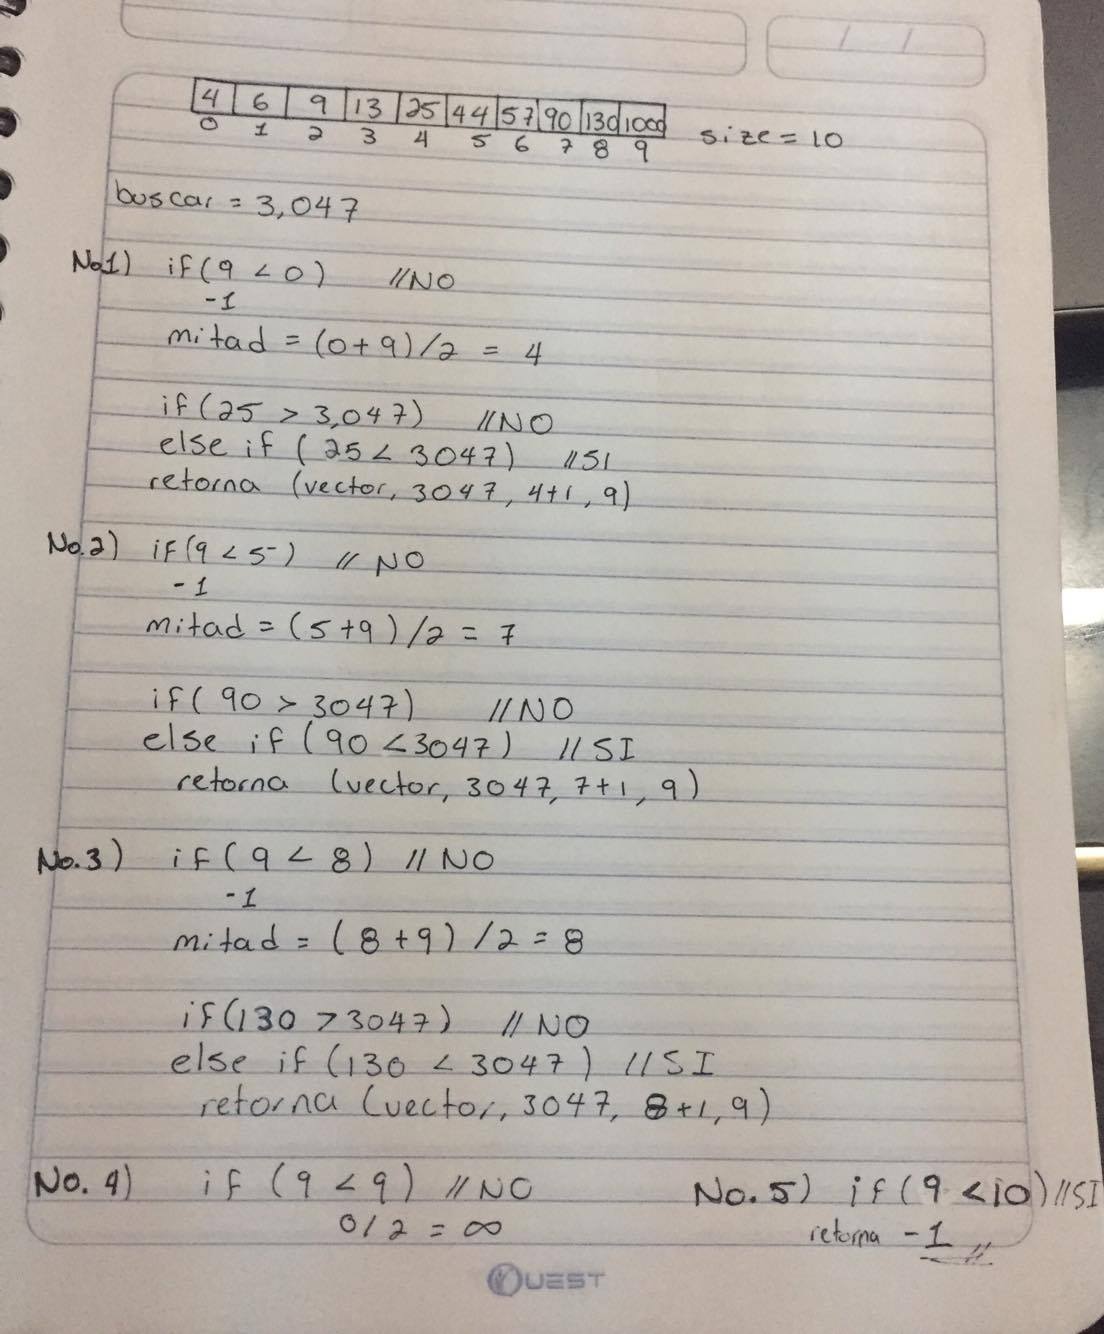 / /
4 6 9 13 25 44 57 90 130 1000
0 1 2 3 4 5 6 7 8 9 size = 10
buscar = 3,047
No.1) if(9 < 0) //NO
-1
mitad = (0+9)/2 = 4
if(25 > 3,047) //NO
else if (25 < 3047) //SI
retorna (vector, 3047, 4+1, 9)
No.2) if(9 < 5) // NO
-1
mitad = (5+9)/2 = 7
if(90 > 3047) //NO
else if (90 < 3047) //SI
retorna (vector, 3047, 7+1, 9)
No.3) if(9 < 8) //NO
-1
mitad = (8+9)/2 = 8
if(130 > 3047) //NO
else if (130 < 3047) //SI
retorna (vector, 3047, 8+1, 9)
No.4) if (9 < 9) //NO
0/2 = ∞
No.5) if(9 < 10) //SI
retorna -1 //
QUEST